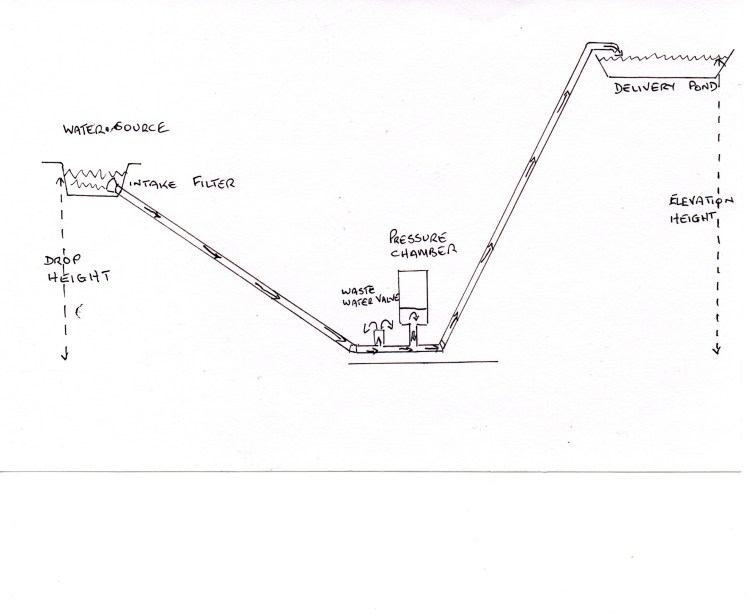 WATER SOURCE
INTAKE FILTER
DROP
HEIGHT
PRESSURE
CHAMBER
WASTE
WATER VALVE
DELIVERY POND
ELEVATION
HEIGHT